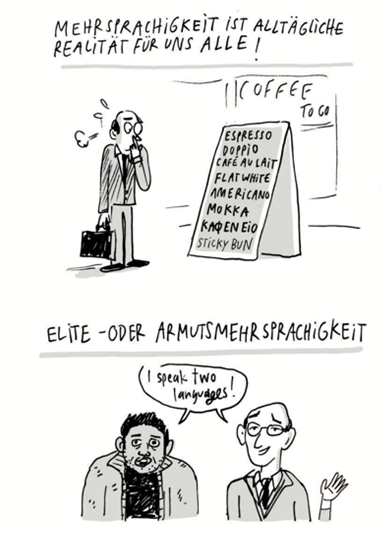 MEHRSPRACHIGKEIT IST ALLTÄGLICHE
REALITÄT FÜR UNS ALLE!
COFFEE
TO GO
ESPRESSO
DOPPIO
CAFÉ AU LAIT
FLAT WHITE
AMERICANO
MOKKA
ΚΑΦΕΝΕΙΟ
STICKY BUN
ELITE-ODER ARMUTSMEHRSPRACHIGKEIT
I speak two
languages!